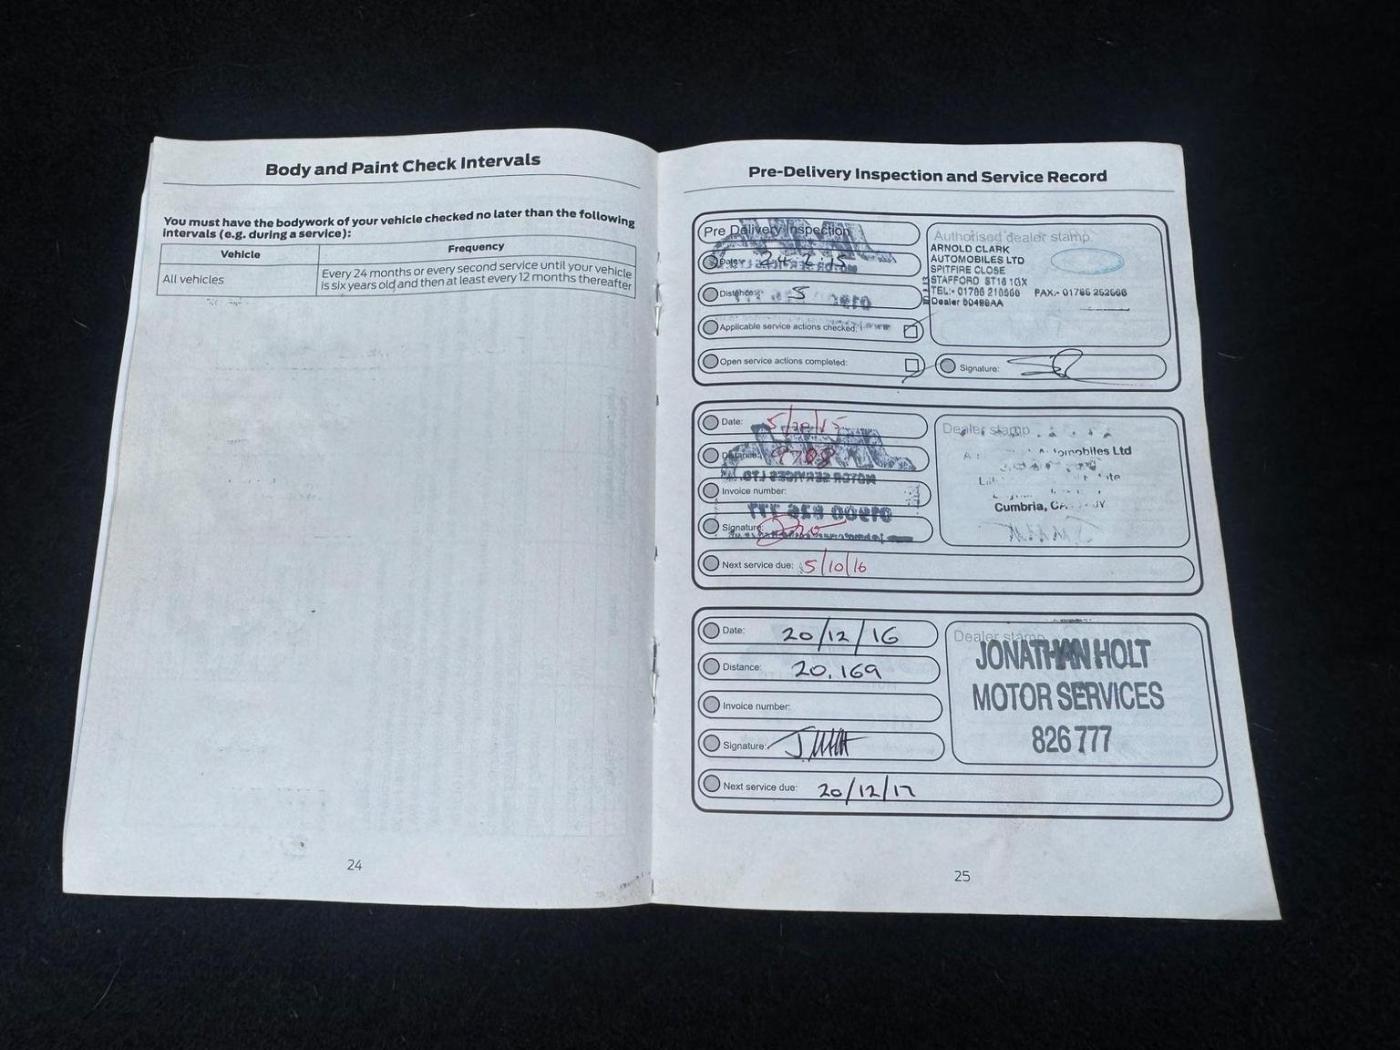 Body and Paint Check Intervals
You must have the bodywork of your vehicle checked no later than the following
intervals (e.g. during a service):
Vehicle Frequency
All vehicles Every 24 months or every second service until your vehicle
is six years old and then at least every 12 months thereafter
24
Pre-Delivery Inspection and Service Record
Pre Delivery Inspection
Date: 24.2.15
Distance: 5
Applicable service actions checked:
Open service actions completed:
Authorised dealer stamp
ARNOLD CLARK
AUTOMOBILES LTD
SPITFIRE CLOSE
STAFFORD ST16 1GX
TEL:- 01786 210560 FAX:-
Dealer
Signature:
Date: 5/10/15
Distance: 9708
Invoice number:
Signature:
Next service due: 5/10/16
Dealer stamp
Automobiles Ltd
Cumbria,
Date: 20/12/16
Distance: 20,169
Invoice number:
Signature:
Next service due: 20/12/17
Dealer stamp
JONATHAN HOLT
MOTOR SERVICES
826 777
25